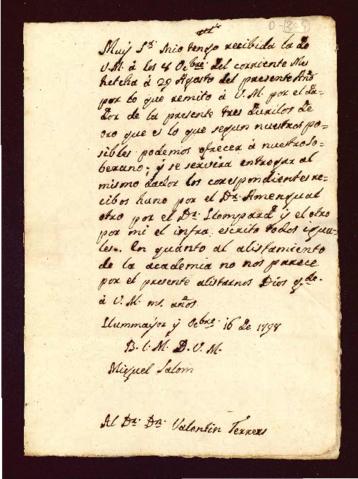 Muy Sr. mio tengo recibida la de
V.M. á los 4 Ocbre. del corriente
hecha á 29 Agosto del presente Año
por lo que remito á V.M. por el da-
dor de la presente tres durillos de
oro que es lo que segun nuestros po-
sibles podemos ofrecer á nuestro So-
berano; y se servirá entregar al
mismo dador los corespondientes re-
cibos huno por el Dr. Amengual
otro por el Dr. Llompard y el otro
por mi el infra. escrito todos igua-
les. En quánto al alistamiento
de la academia no nos parece
por el presente alistarnos Dios gde.
á V.M. ms. años.
Llummayor y Ocbre. 16 de 1794
B.L.M. D.V.M.
Miguel Salom
Al Dr. Dn. Valentin Terrers